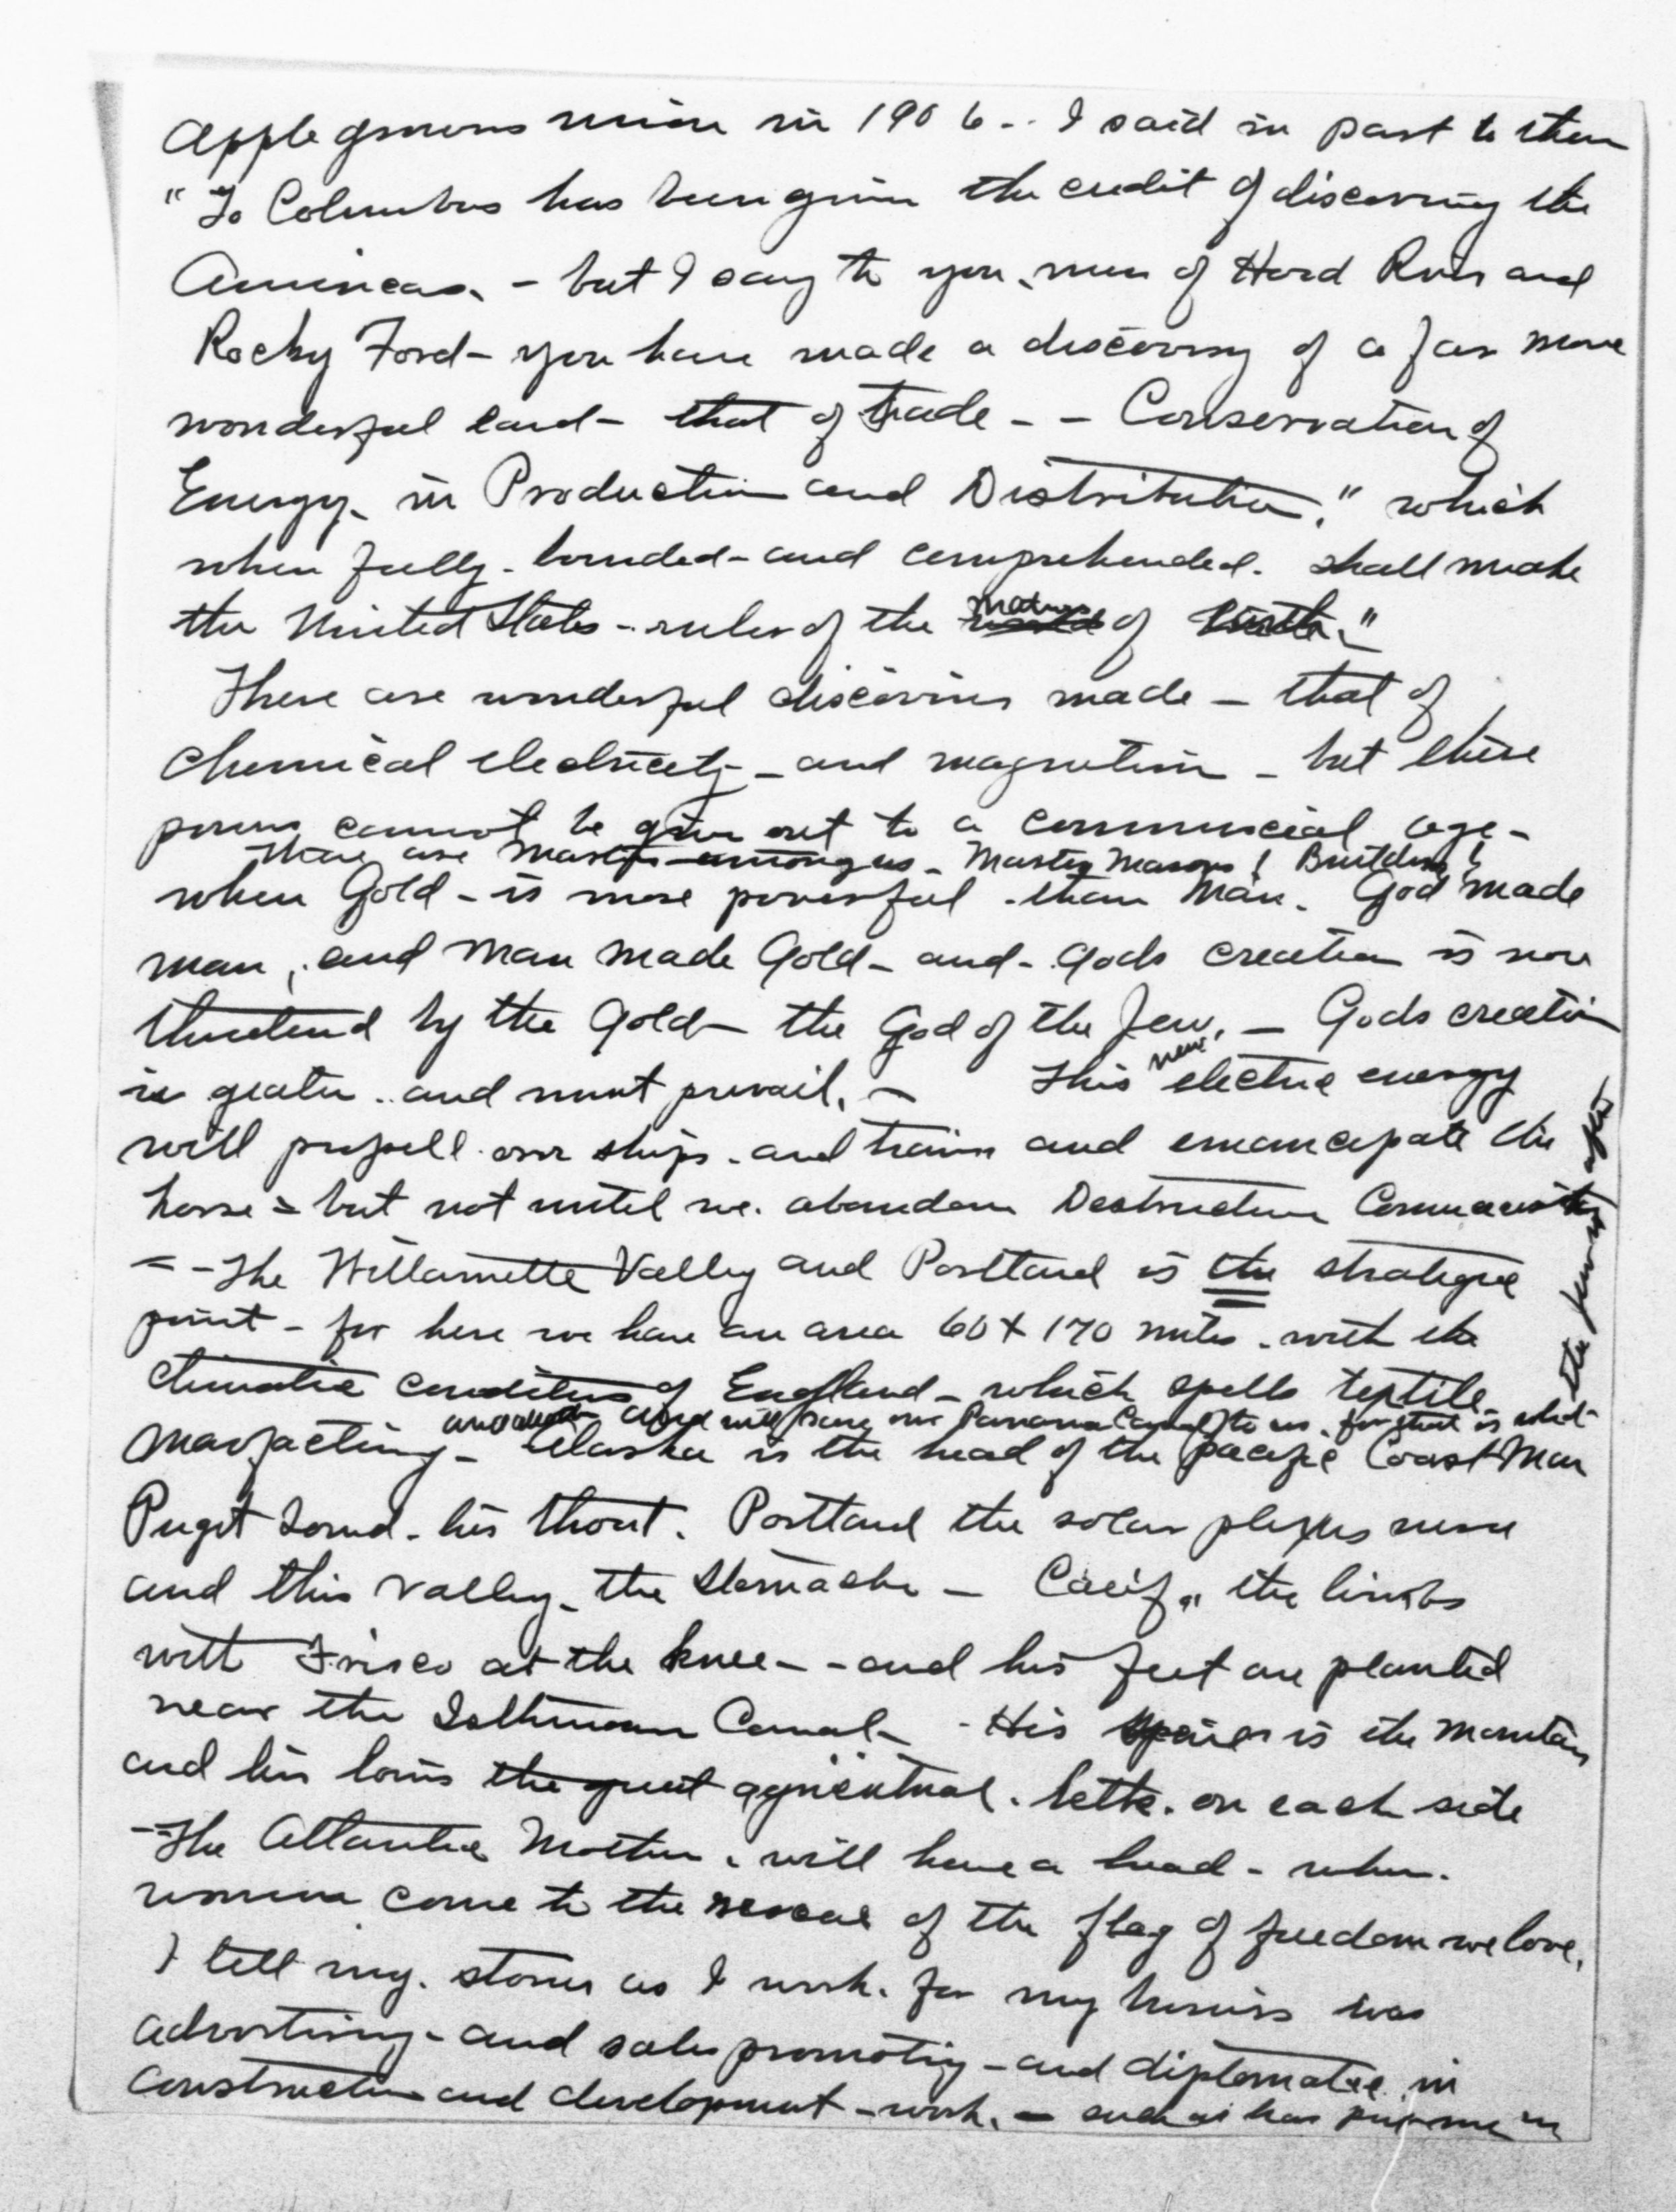 Apple growers union in 1906 -- I said in part to them
"To Columbus has been given the credit of discovering the
Americas. - but I say to you, men of Hood River and
Rocky Ford - you have made a discovery of a far more
wonderful land - that of trade - - Conservation of
Energy. in Production and Distribution." which
when fully - and comprehended. shall make
the United States - ruler of the nations of Earth."
There are wonderful discoveries made - that of
chemical electricity - and magnetism - but these
powers cannot be given out to a commercial age -
there are Masters among us - Master Masons! Builders!
when Gold - is more powerful - than Man. God made
man, and Man made Gold - and - Gods creation is now
threatend by the Gold - the God of the Jew. - Gods creation
is greater .. and must prevail. - This new electric energy
will propell our ships - and trains and emancipate the
horse = but not until we. abandon Destructive
= - The Willamette Valley and Portland is the strategic
point - for here we have an area 60 x 170 miles. with the
climatic conditions of England - which spells textile
and will save our Panama Canal to us. for that is what
the after
Alaska is the head of the pacific Coast Man
Puget Sound - his throat. Portland the solar plexus nerve
and this valley - the Stomache - Calif., the limbs
with Frisco at the knee - - and his feet are planted
near the Isthmian Canal - - His is the Mountains
and his loins the great agricultural. belts. on each side
- The Atlantic Mother. will have a head - when.
women come to the rescue of the flag of freedom we love.
I tell my. stories as I work. for my business was
advertising - and sales promoting - and diplomatic in
construction and development - work. - such as has put me in